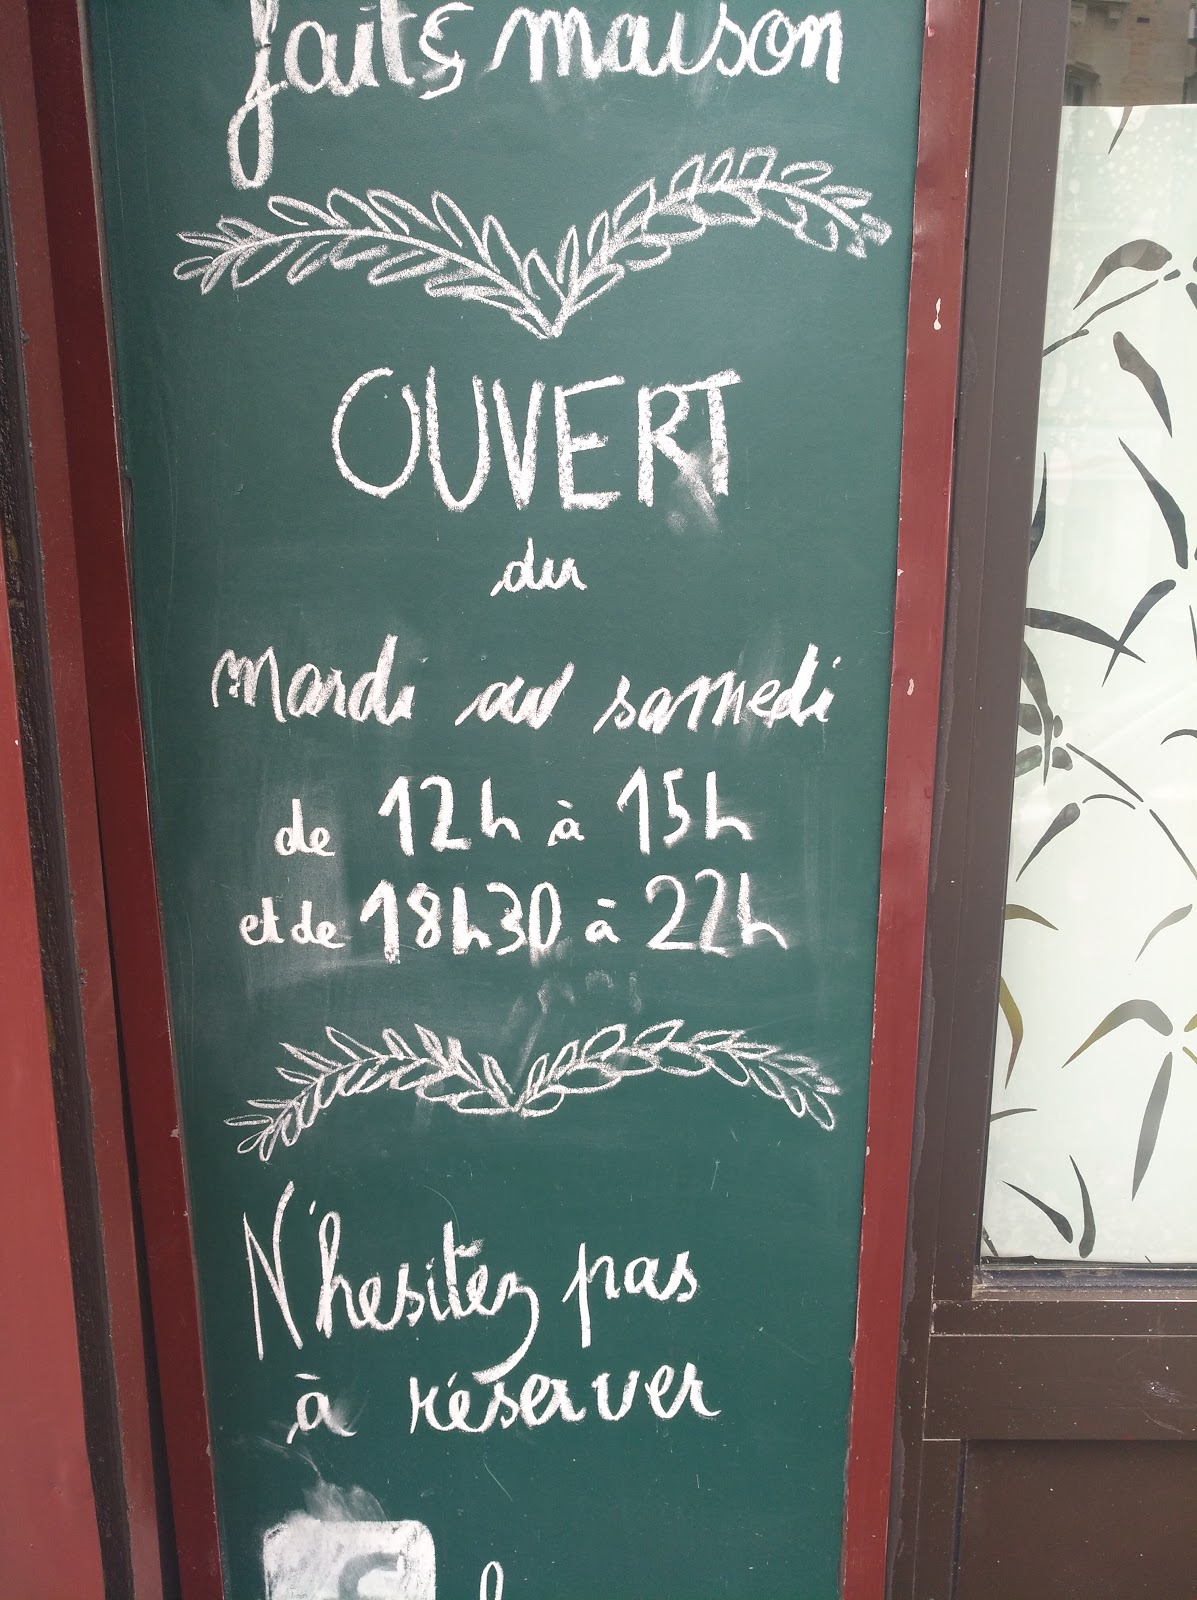 faits maison
OUVERT
du
mardi au samedi
de 12h à 15h
et de 18h30 à 22h
N'hesitez pas
à réserver